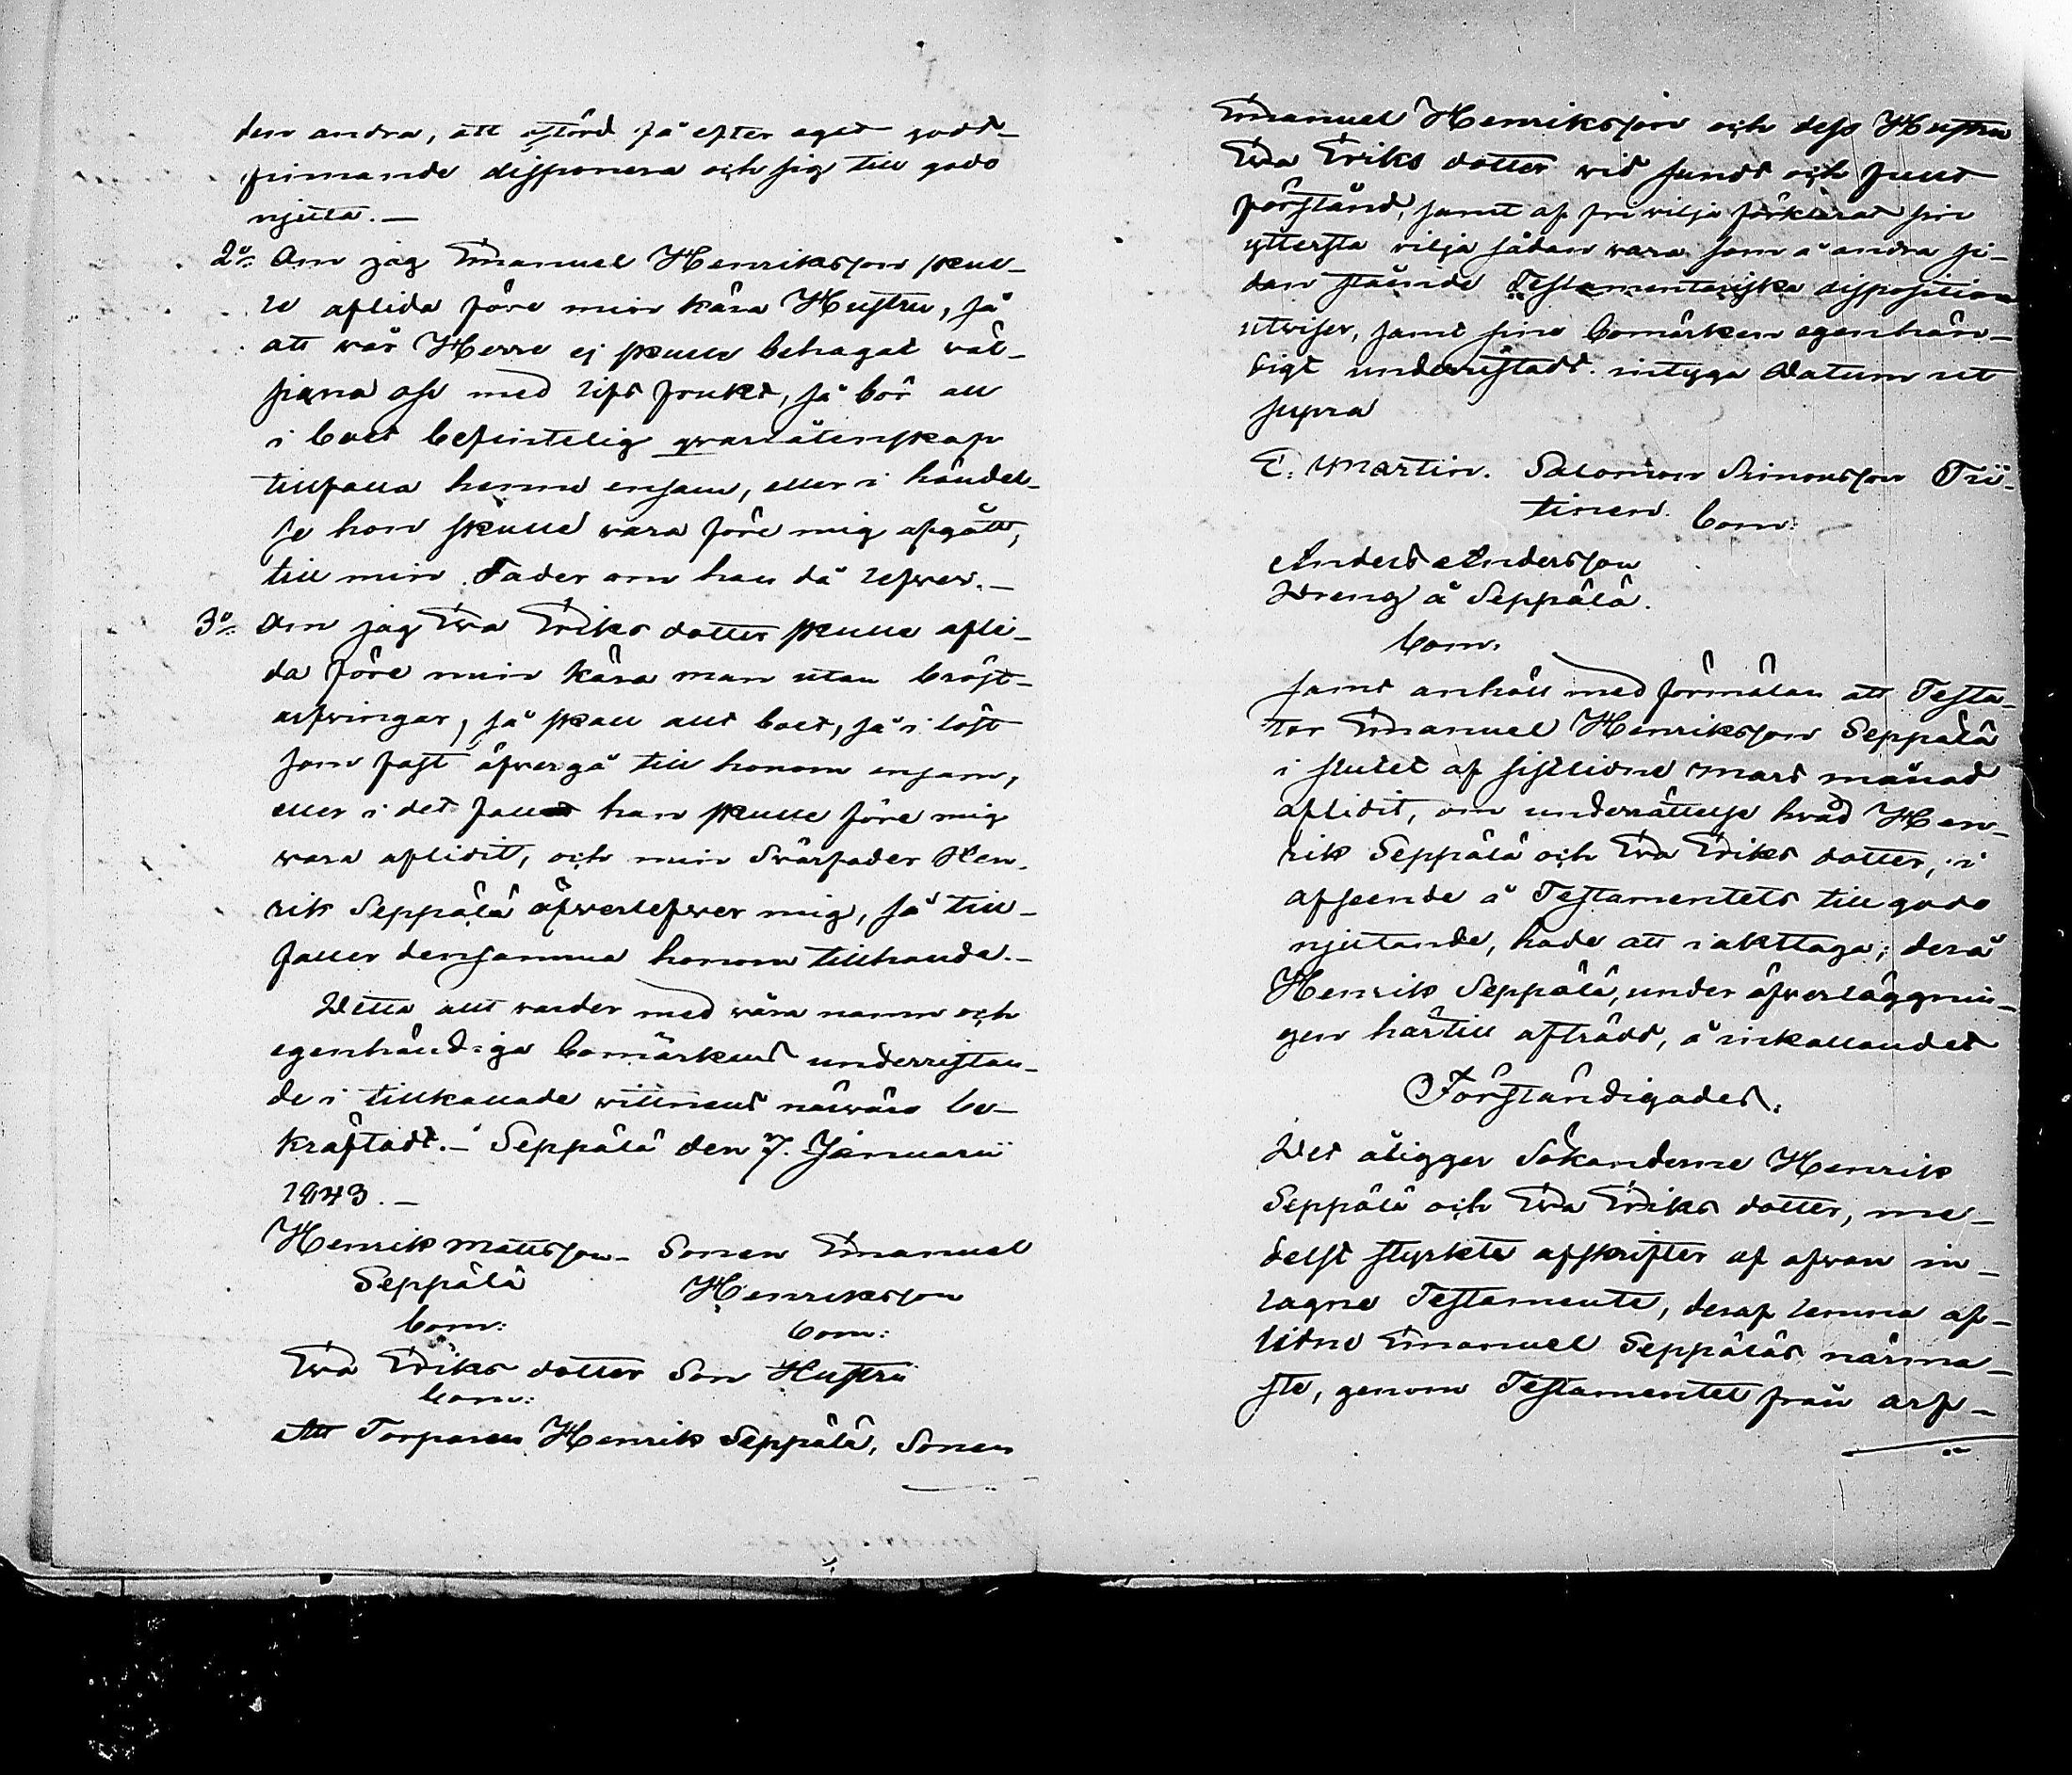 den andra, att ostörd få efter eget godt-
finnande disponera och sig till godo
njuta.—
2:o Om jag Emanuel Henriksson skul-
le aflida före min kära Hustru, så
att wår Herre ej skulle behagat väl-
signa oss med lifs frukt, så bör all
i boet befintelig qvarlåtenskap
tillfalla henne ensam, eller i händel-
se hon skulle wara före mig afgått,
till min Fader om han då lefwer.—
3:o Om jag Ewa Eriks dotter skulle afli-
da före min kära man utan bröst-
arfwingar, så skall allt boet, så i löst
som fast öfwergå till honom ensam,
eller i det fallet han skulle före mig
wara aflidit, och min Swärfader Hen-
rik Seppälä öfwerlefwer mig, så till-
faller densamma honom tillhanda.—
Detta allt warder med wåra namn och
egenhändiga bomärkens underristan-
de i tillkallade wittnens närwaro be-
kräftadt.— Seppälä den 7. Januarii
1843.—
Henrik Mattsson— Sonen Emanuel
Seppälä Henriksson
bom: bom:
Ewa Eriks dotter Son Hustru
bom:
Att Torparen Henrik Seppälä, Sonen
Emanuel Henriksson och dess Hustru
Ewa Eriks dotter wid sundt och fullt
förstånd, samt af fri wilja förklarat sin
yttersta wilja sådan wara som å andra si-
dan stående Testamentariska disposition
utwiser, samt sina bomärken egenhän-
digt underristadt. intyga Datum ut
supra
E. Martin. Salomon Simonsson Tii-
tinen. bom:
Anders Andersson
Dreng å Seppälä.
bom:
samt anhöll med förmälan att Testa-
tor Emanuel Henriksson Seppälä
i slutet af sistlidne Mars månad
aflidit, om underrättelse hvad Hen-
rik Seppälä och Ewa Eriks dotter, i
afseende å Testamentets till godo
njutande, hade att iakttaga; derå
Henrik Seppälä, under öfwerläggnin-
gen härtill afträdt, å inkallandet
Förständigades:
Det åligger Sökanderne Henrik
Seppälä och Ewa Eriks dotter, me-
delst styrkta afskrifter af ofwan in-
tagne Testamente, deraf lemna af-
lidne Emanuel Seppäläs närma-
ste, genom Testamentet från arf-